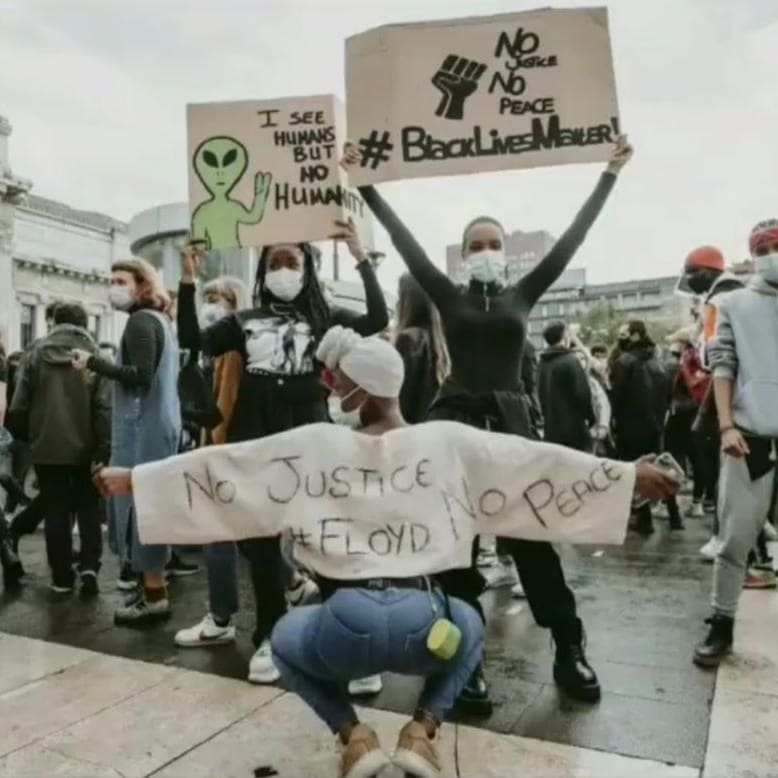 I SEE
HUMANS
BUT
NO
HUMANITY
NO
JUSTICE
NO
PEACE
#BLACKLIVESMATTER!
NO JUSTICE NO PEACE
#FLOYD